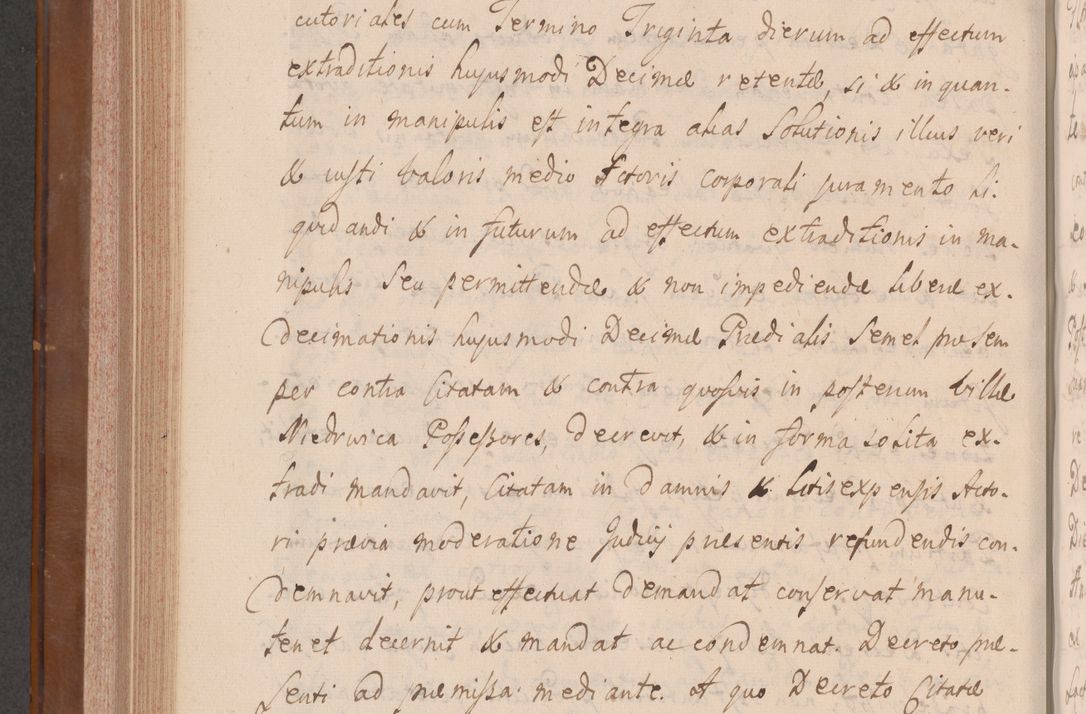 cutoriales cum Termino Triginta dierum ad effectum
extraditionis hujusmodi Decimæ retentæ, si & in quan-
tum in manipulis est integra alias Solutionis illius veri
& iusti valoris medio Actoris corporali juramento li-
quidandi & in futurum ad effectum extraditionis in ma-
nipulis seu permittendæ & non impediendæ liberæ ex-
Decimationis hujusmodi Decimæ Prædialis semel pro sem
per contra Citatam & contra quosvis in posterum Villæ
Niedrwica Possessores, decrevit, & in forma solita ex-
tradi mandavit, Citatam in damnis & litis expensis Acto-
ri prævia moderatione Judicij præsentis refundendis con-
demnavit, prout effectuat demandat conservat manu-
tenet decernit & mandat ac condemnat. Decreto præ-
senti ad præmissa mediante. at quo Decreto Citatæ